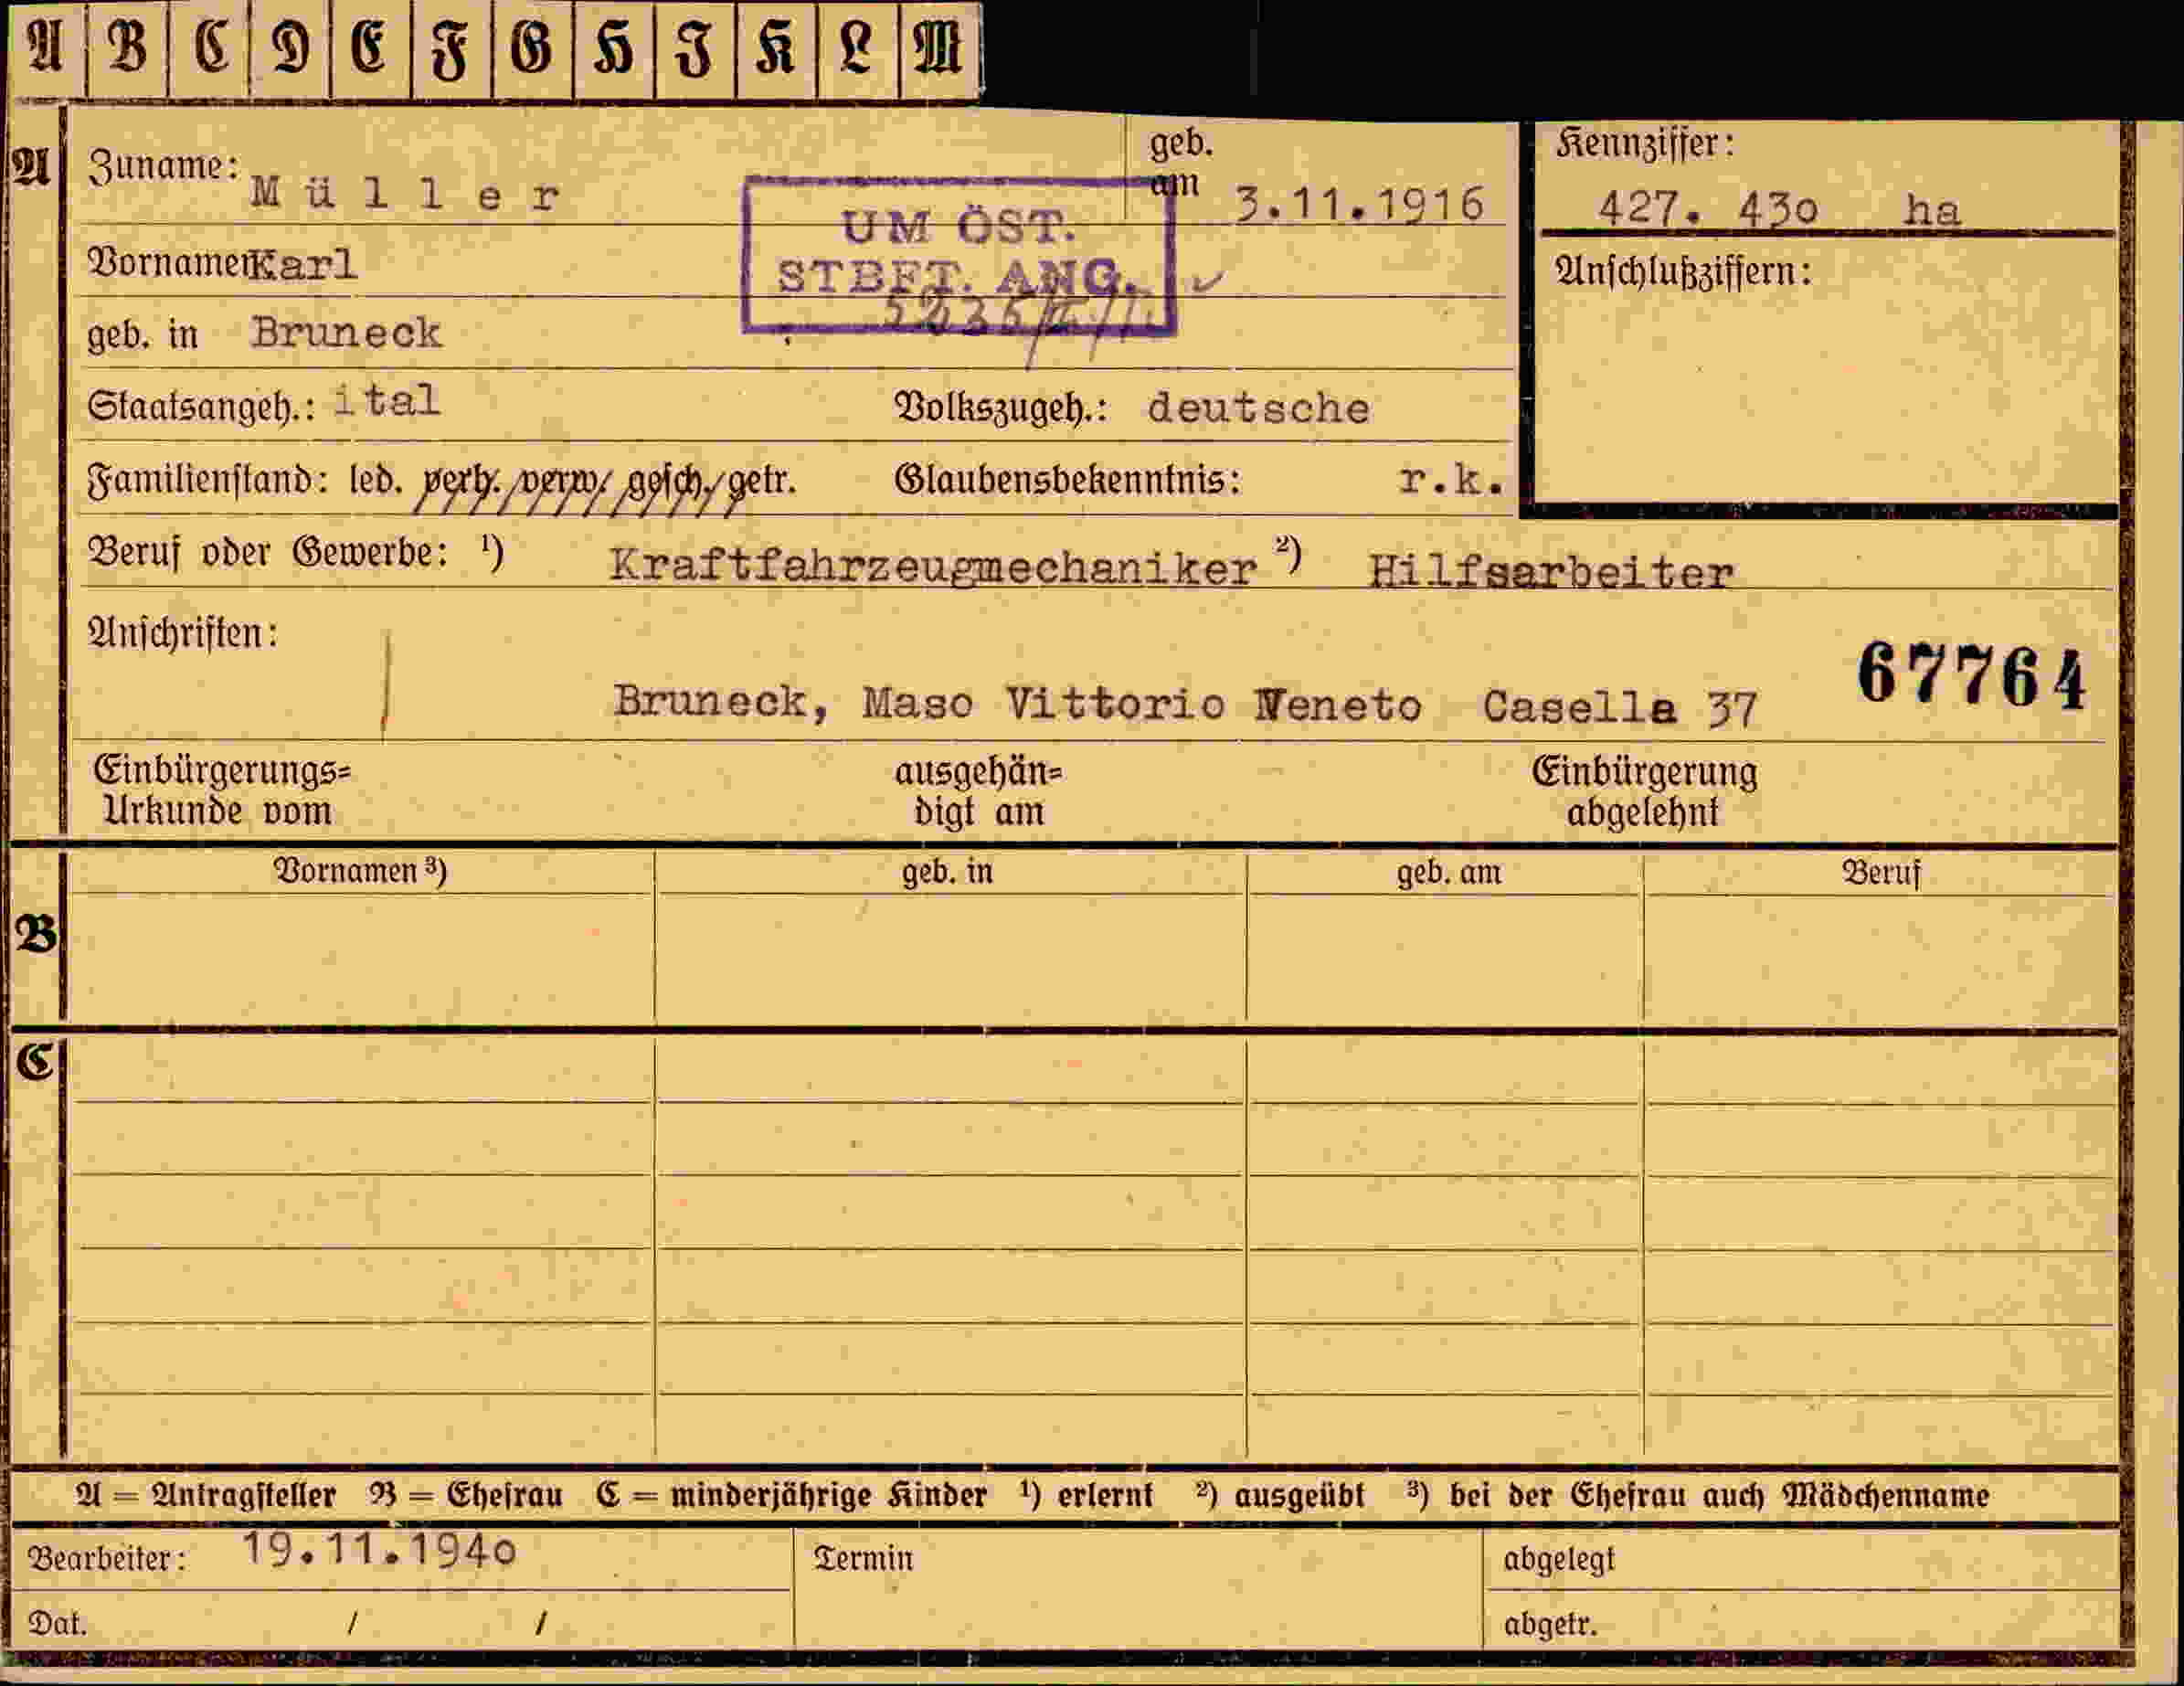 A B C D E F G H I K L M
A
Zuname: Müller
geb. am 3.11.1916
Kennziffer:
427. 430 ha
UM ÖST.
STBFT. ANG.
Vornamen Karl
Anschlußziffern:
geb. in Bruneck
Staatsangeh.: ital Volkszugeh.: deutsche
Familienstand: led. verh. verw. gesch. getr. Glaubensbekenntnis: r.k.
Beruf oder Gewerbe: ¹) Kraftfahrzeugmechaniker ²) Hilfsarbeiter
Anschriften:
67764
Bruneck, Maso Vittorio Veneto Casella 37
Einbürgerungs= ausgehän= Einbürgerung
Urkunde vom digt am abgelehnt
Vornamen ³) geb. in geb. am Beruf
B
C
A = Antragsteller B = Ehefrau C = minderjährige Kinder ¹) erlernt ²) ausgeübt ³) bei der Ehefrau auch Mädchenname
Bearbeiter: 19.11.1940 Termin abgelegt
Dat. / / abgetr.